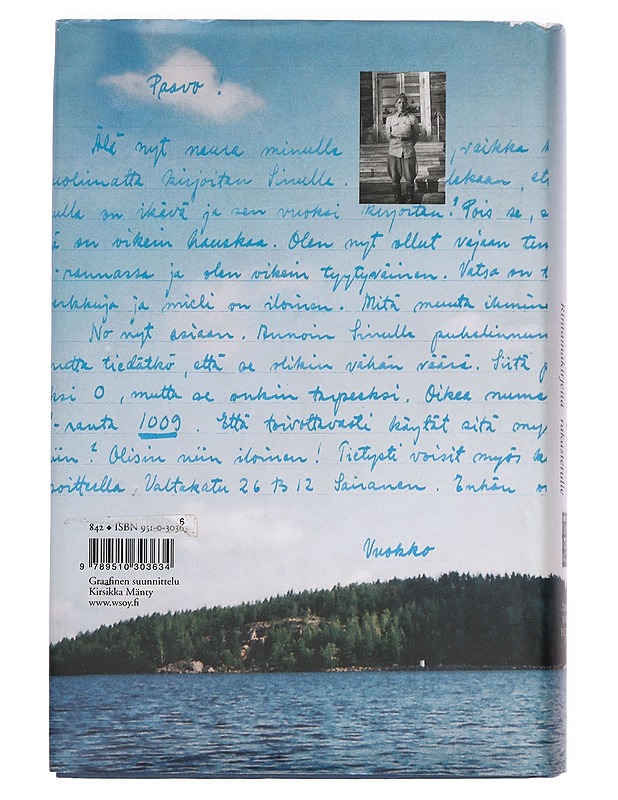 Paavo!
Älä nyt naura minulle , vaikka
kirjoitan Sinulle.
on ikävä ja sen vuoksi kirjoitan? Pois se,
on oikein hauskaa. Olen nyt ollut vajaan
-rannassa ja olen oikein tyytyväinen. Vatsa on
ja mieli on iloinen. Mitä muuta
No nyt asiaan. Annoin Sinulle
tiedätkö, että se olikin vähän väärä. Siitä
0, mutta se onkin tarpeeksi. Oikea
-ranta 1009. Että toivottavasti käytät sitä
? Olisin niin iloinen! Tietysti voisit myös
Valtakatu 26 B 12 Sairanen. Enhän
Vuokko
6
842 ♦ ISBN 951-0-3036
9 789510 303634
Graafinen suunnittelu
Kirsikka Mänty
www.wsoy.fi
Rintamakirjeitä rakastetulle